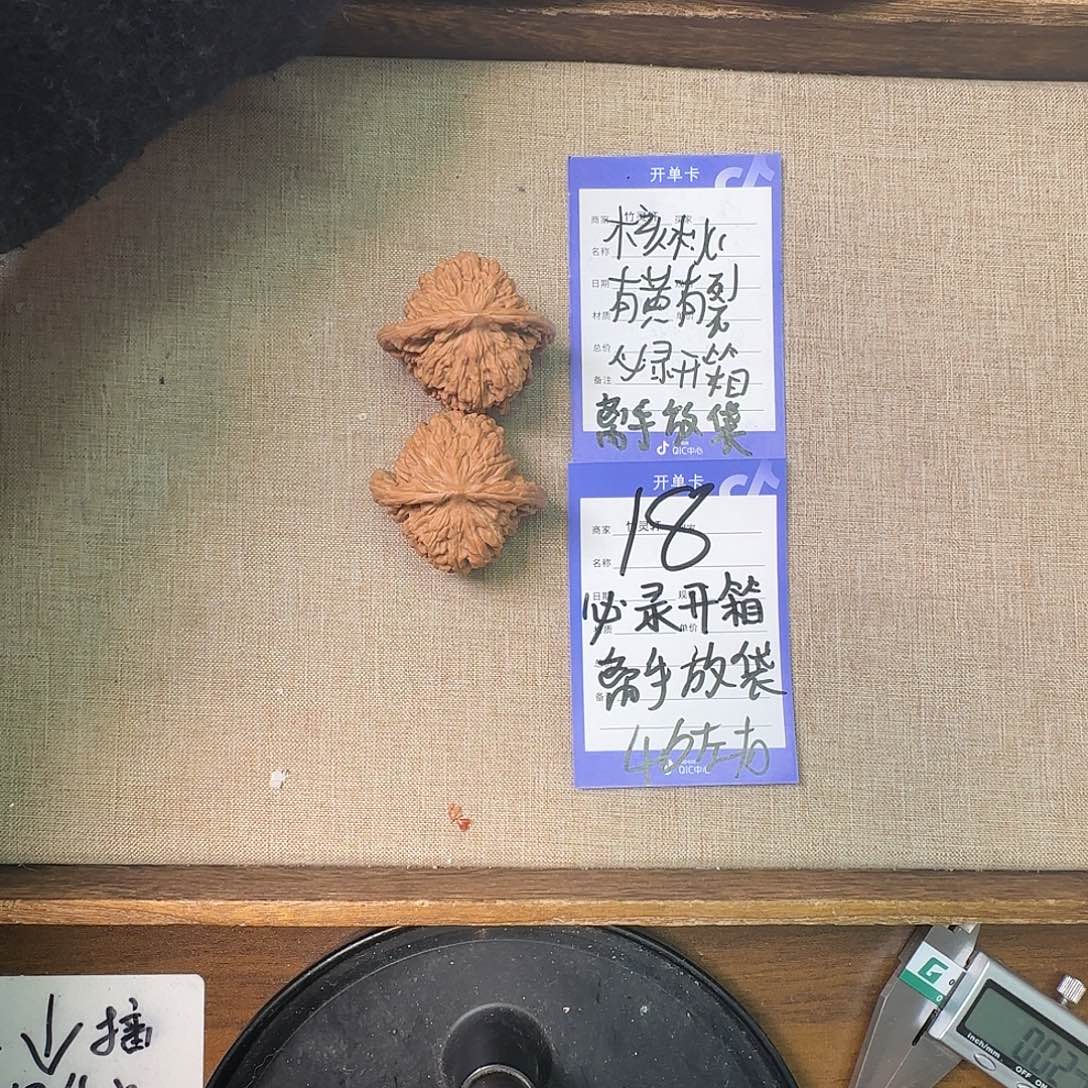 开单卡
商家 竹灵轩 买家
核桃
名称
日期
有黄有裂
材质 单价
总价
必绿开箱
备注
离手放袋
QIC中心
开单卡
18
商家 竹灵轩
名称
日期 规
必录开箱
质 单价
离手放袋
备
46左右
QIC中心
↓插
G
inch/mm
OFF